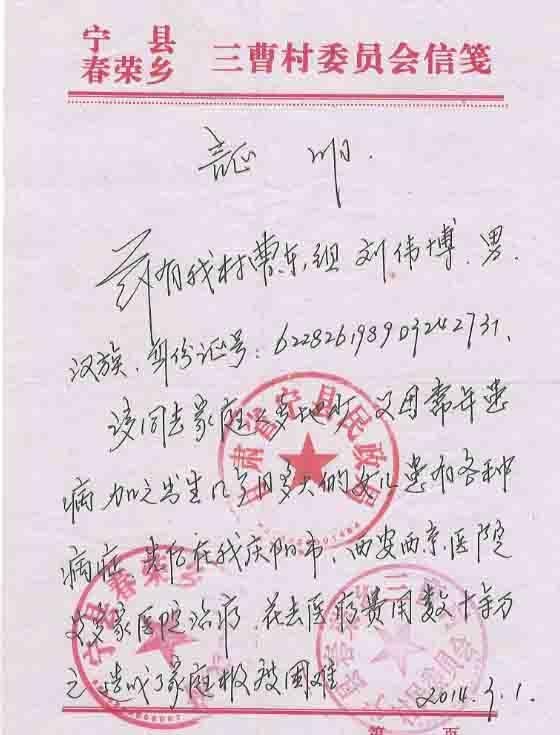 宁县
春荣乡
三曹村委员会信笺
证 明.
有我村曹东组 刘伟博.男.
汉族.身份证号：622826198903242731、
该同志家庭 父母常年患
病 加之出生 女儿患有各种
病症. 先后在我庆阳市、西安西京医院
家医院治疗 花去医疗费用数十余万
之造成了家庭极度困难
2014.3.1.
甘肃省宁县民政局
宁县春荣乡
页